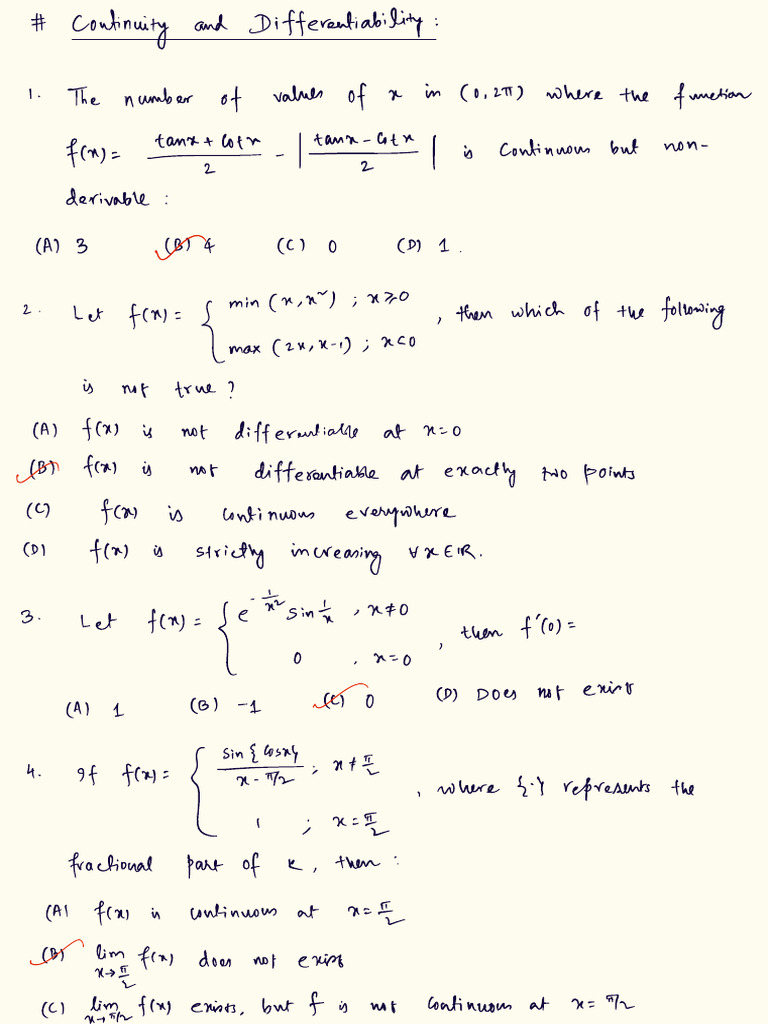 # Continuity and Differentiability:
1. The number of values of x in (0, 2π) where the function
f(x) = (tanx + cotx)/2 - |(tanx - cotx)/2| is continuous but non-
derivable :
(A) 3 (B) 4 (C) 0 (D) 1.
2. Let f(x) = { min (x, x²) ; x ≥ 0
max (2x, x-1) ; x < 0 , then which of the following
is not true ?
(A) f(x) is not differentiable at x = 0
(B) f(x) is not differentiable at exactly two points
(C) f(x) is continuous everywhere
(D) f(x) is strictly increasing ∀ x ∈ ℝ.
3. Let f(x) = { e^(-1/x²) sin 1/x , x ≠ 0
0 , x = 0 , then f'(0) =
(A) 1 (B) -1 (C) 0 (D) Does not exist
4. If f(x) = { sin{cosx}/(x - π/2) ; x ≠ π/2
1 ; x = π/2 , where {·} represents the
fractional part of x, then :
(A) f(x) is continuous at x = π/2
(B) lim x→π/2 f(x) does not exist
(C) lim x→π/2 f(x) exists, but f is not continuous at x = π/2